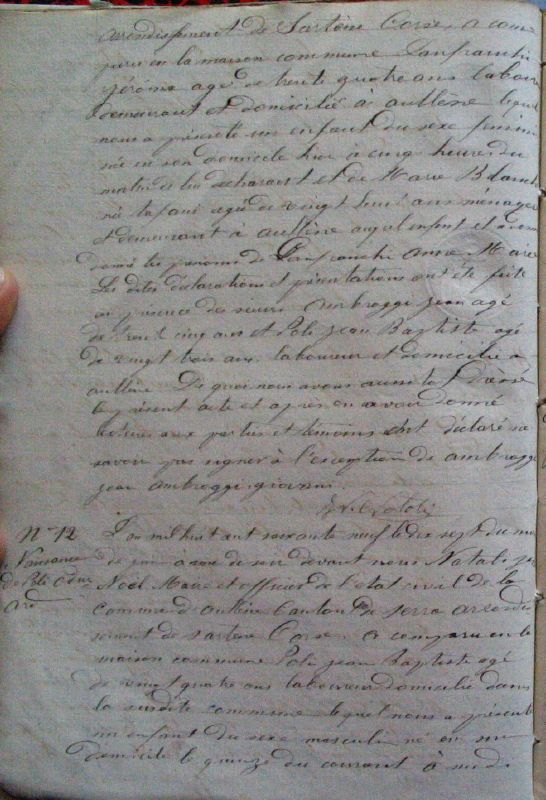 arrondissement de Sartène Corse, a com
paru en la maison commune Lanfranchi
Jérôme agé de trente quatre ans laboureur
demeurant et domicilié à aullène lequel
nous a présenté un enfant du sexe féminin
née en son domicile hier à cinq heures du
matin de lui déclarant et de Marie
agée de vingt huit ans ménagère
et demeurant à aullène auquel enfant il a
donné les prénoms de Lanfranchi Anne Marie
Les dites déclarations et présentations ont été faite
en présence des sieurs ambroggi jean agé
de trente cinq ans et Poli jean Baptiste agé
de vingt trois ans laboureur et domicilié à
aullène De quoi nous avons aussitôt Dréssé
le présent acte et après en avoir donné
lecture aux parties et témoins ont déclaré ne
savoir pas signer à l'exception de ambroggi
jean ambroggi giovani
N° 12 L'an mil huit cent soixante neuf le dix sept du mois
Naissance de juin a de soir devant nous Natali
de Poli Noël Maire et officier de l'état civil de la
commune d'aullène Canton de Serra arrondis
sement de Sartène Corse. a comparu en la
maison commune Poli jean Baptiste agé
de vingt quatre ans laboureur domicilié dans
la susdite commune lequel nous a présenté
un enfant du sexe masculin né en son
domicile le quinze du courant à midi